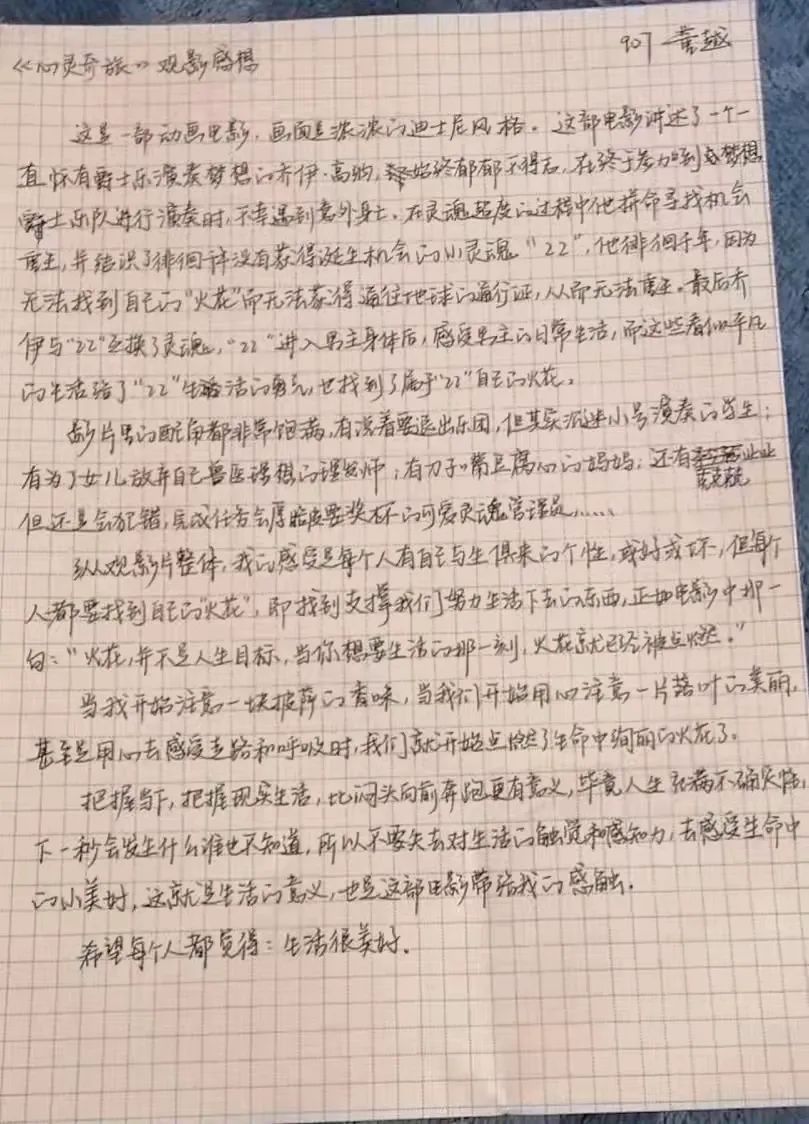 907 黄越
《心灵奇旅》观影感想
这是一部动画电影，画面是浓浓的迪士尼风格。这部电影讲述了一个一
直怀有爵士乐演奏梦想的乔伊·高纳，始终郁郁不得志，在终于努力到梦想
爵士乐队进行演奏时，不幸遇到意外身亡。在灵魂超度的过程中他拼命寻找机会
重生，并结识了徘徊许没有获得诞生机会的小灵魂“22”，他徘徊千年，因为
无法找到自己的“火花”而无法获得通往地球的通行证，从而无法重生。最后乔
伊与“22”互换了灵魂，“22”进入男主身体后，感受男主的日常生活，而这些看似平凡
的生活给了“22”生活的勇气，也找到了属于“22”自己的火花。
影片里的配角都非常饱满，有说着要退出乐团，但其实沉迷小号演奏的学生；
有为了女儿放弃自己兽医理想的理发师；有刀子嘴豆腐心的妈妈；还有兢兢业业
但还是会犯错，完成任务会厚脸皮要奖杯的可爱灵魂管理员……
纵观影片整体，我的感受是每个人有自己与生俱来的个性，或好或坏，但每个
人都要找到自己的“火花”，即找到支撑我们努力生活下去的东西，正如电影中那一
句：“火花，并不是人生目标，当你想要生活的那一刻，火花就已经被点燃。”
当我开始注意一块披萨的香味，当我们开始用心注意一片落叶的美丽，
甚至是用心去感受走路和呼吸时，我们就开始点燃了生命中绚丽的火花了。
把握当下，把握现实生活，比闷头向前奔跑更有意义，毕竟人生充满不确定性，
下一秒会发生什么谁也不知道，所以不要失去对生活的触觉和感知力，去感受生命中
的小美好，这就是生活的意义，也是这部电影带给我的感触。
希望每个人都觉得：生活很美好。